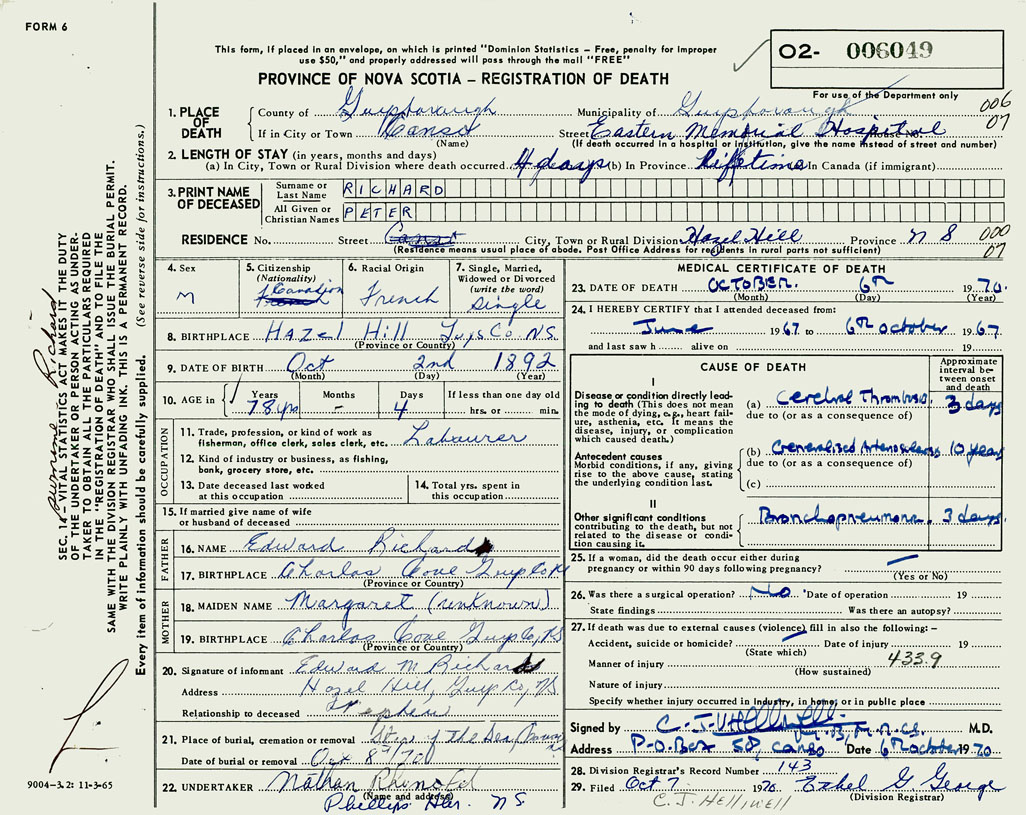 FORM 6
This form, if placed in an envelope, on which is printed "Dominion Statistics – Free, penalty for improper
use $50," and properly addressed will pass through the mail "FREE"
PROVINCE OF NOVA SCOTIA – REGISTRATION OF DEATH
O2- 006049
For use of the Department only
006
07
1. PLACE OF DEATH
County of Guysborough Municipality of Guysborough
If in City or Town Canso Street Eastern Memorial Hospital
(Name) (If death occurred in a hospital or institution, give the name instead of street and number)
2. LENGTH OF STAY (in years, months and days)
(a) In City, Town or Rural Division where death occurred 4 days (b) In Province lifetime In Canada (if immigrant)
3. PRINT NAME OF DECEASED
Surname or Last Name RICHARD
All Given or Christian Names PETER
000
07
RESIDENCE No. Street Canso City, Town or Rural Division Hazel Hill Province N S
(Residence means usual place of abode. Post Office Address for residents in rural parts not sufficient)
4. Sex
M
5. Citizenship
(Nationality)
Canadian
French
6. Racial Origin
French
7. Single, Married,
Widowed or Divorced
(write the word)
Single
8. BIRTHPLACE Hazel Hill Guys Co. N.S.
(Province or Country)
9. DATE OF BIRTH Oct 2nd 1892
(Month) (Day) (Year)
10. AGE in
Years Months Days If less than one day old
78 yrs – 4 hrs. or min.
OCCUPATION
11. Trade, profession, or kind of work as
fisherman, office clerk, sales clerk, etc. Labourer
12. Kind of industry or business, as fishing,
bank, grocery store, etc.
13. Date deceased last worked
at this occupation
14. Total yrs. spent in
this occupation
15. If married give name of wife
or husband of deceased
FATHER
16. NAME Edward Richard
17. BIRTHPLACE Charlos Cove Guys Co
(Province or Country)
MOTHER
18. MAIDEN NAME Margaret (unknown)
19. BIRTHPLACE Charlos Cove Guys Co, NS
(Province or Country)
20. Signature of informant Edward M. Richard
Address Hazel Hill, Guys Co, NS
Relationship to deceased Nephew
21. Place of burial, cremation or removal Star of the Sea, Canso
Date of burial or removal Oct 8th/70
22. UNDERTAKER Nathan
(Name and address)
Phillips Har. N.S.
MEDICAL CERTIFICATE OF DEATH
23. DATE OF DEATH OCTOBER. 6th 1970.
(Month) (Day) (Year)
24. I HEREBY CERTIFY that I attended deceased from:
June 1967 to 6th October 1967.
and last saw h alive on 19
CAUSE OF DEATH
Approximate
interval be-
tween onset
and death
I
Disease or condition directly lead-
ing to death (This does not mean
the mode of dying, e.g., heart fail-
ure, asthenia, etc. It means the
disease, injury, or complication
which caused death.)
(a) Cerebral Thrombosis. 3 days
due to (or as a consequence of)
Antecedent causes
Morbid conditions, if any, giving
rise to the above cause, stating
the underlying condition last.
(b) Generalised Arteriosclerosis 10 years
due to (or as a consequence of)
(c)
II
Other significant conditions
contributing to the death, but not
related to the disease or condi-
tion causing it.
Bronchopneumonia. 3 days.
25. If a woman, did the death occur either during
pregnancy or within 90 days following pregnancy? —
(Yes or No)
26. Was there a surgical operation? No Date of operation 19
State findings Was there an autopsy?
27. If death was due to external causes (violence) fill in also the following: –
Accident, suicide or homicide? — Date of injury 19
(State which)
433.9
Manner of injury
(How sustained)
Nature of injury
Specify whether injury occurred in industry, in home, or in public place
Signed by C. J. Helliwell M.D.
Address P.O. Box 58 Canso Date 6th October 1970
28. Division Registrar's Record Number 143
29. Filed Oct 7 1970 Ethel G. George
(Division Registrar)
C. J. HELLIWELL
SEC. 14 – VITAL STATISTICS ACT MAKES IT THE DUTY
OF THE UNDERTAKER OR PERSON ACTING AS UNDER-
TAKER TO OBTAIN ALL THE PARTICULARS REQUIRED
IN THE "REGISTRATION OF DEATH" AND TO FILE THE
SAME WITH THE DIVISION REGISTRAR WHO SHALL ISSUE THE BURIAL PERMIT.
WRITE PLAINLY WITH UNFADING INK. THIS IS A PERMANENT RECORD.
Every item of information should be carefully supplied. (See reverse side for instructions.)
surname Richard
9004-3.2: 11-3-65